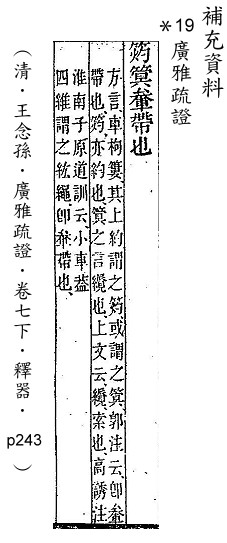 補充資料
*19
廣雅疏證
箹軬帶也
方言車枸簍其上約謂之箹或謂之郭注云卽軬
帶也箹亦約也之言纜也上文云纜索也高誘注
淮南子原道訓云小車蓋
四維謂之紘繩卽軬帶也
（清．王念孫．廣雅疏證．卷七下．釋器．p243）